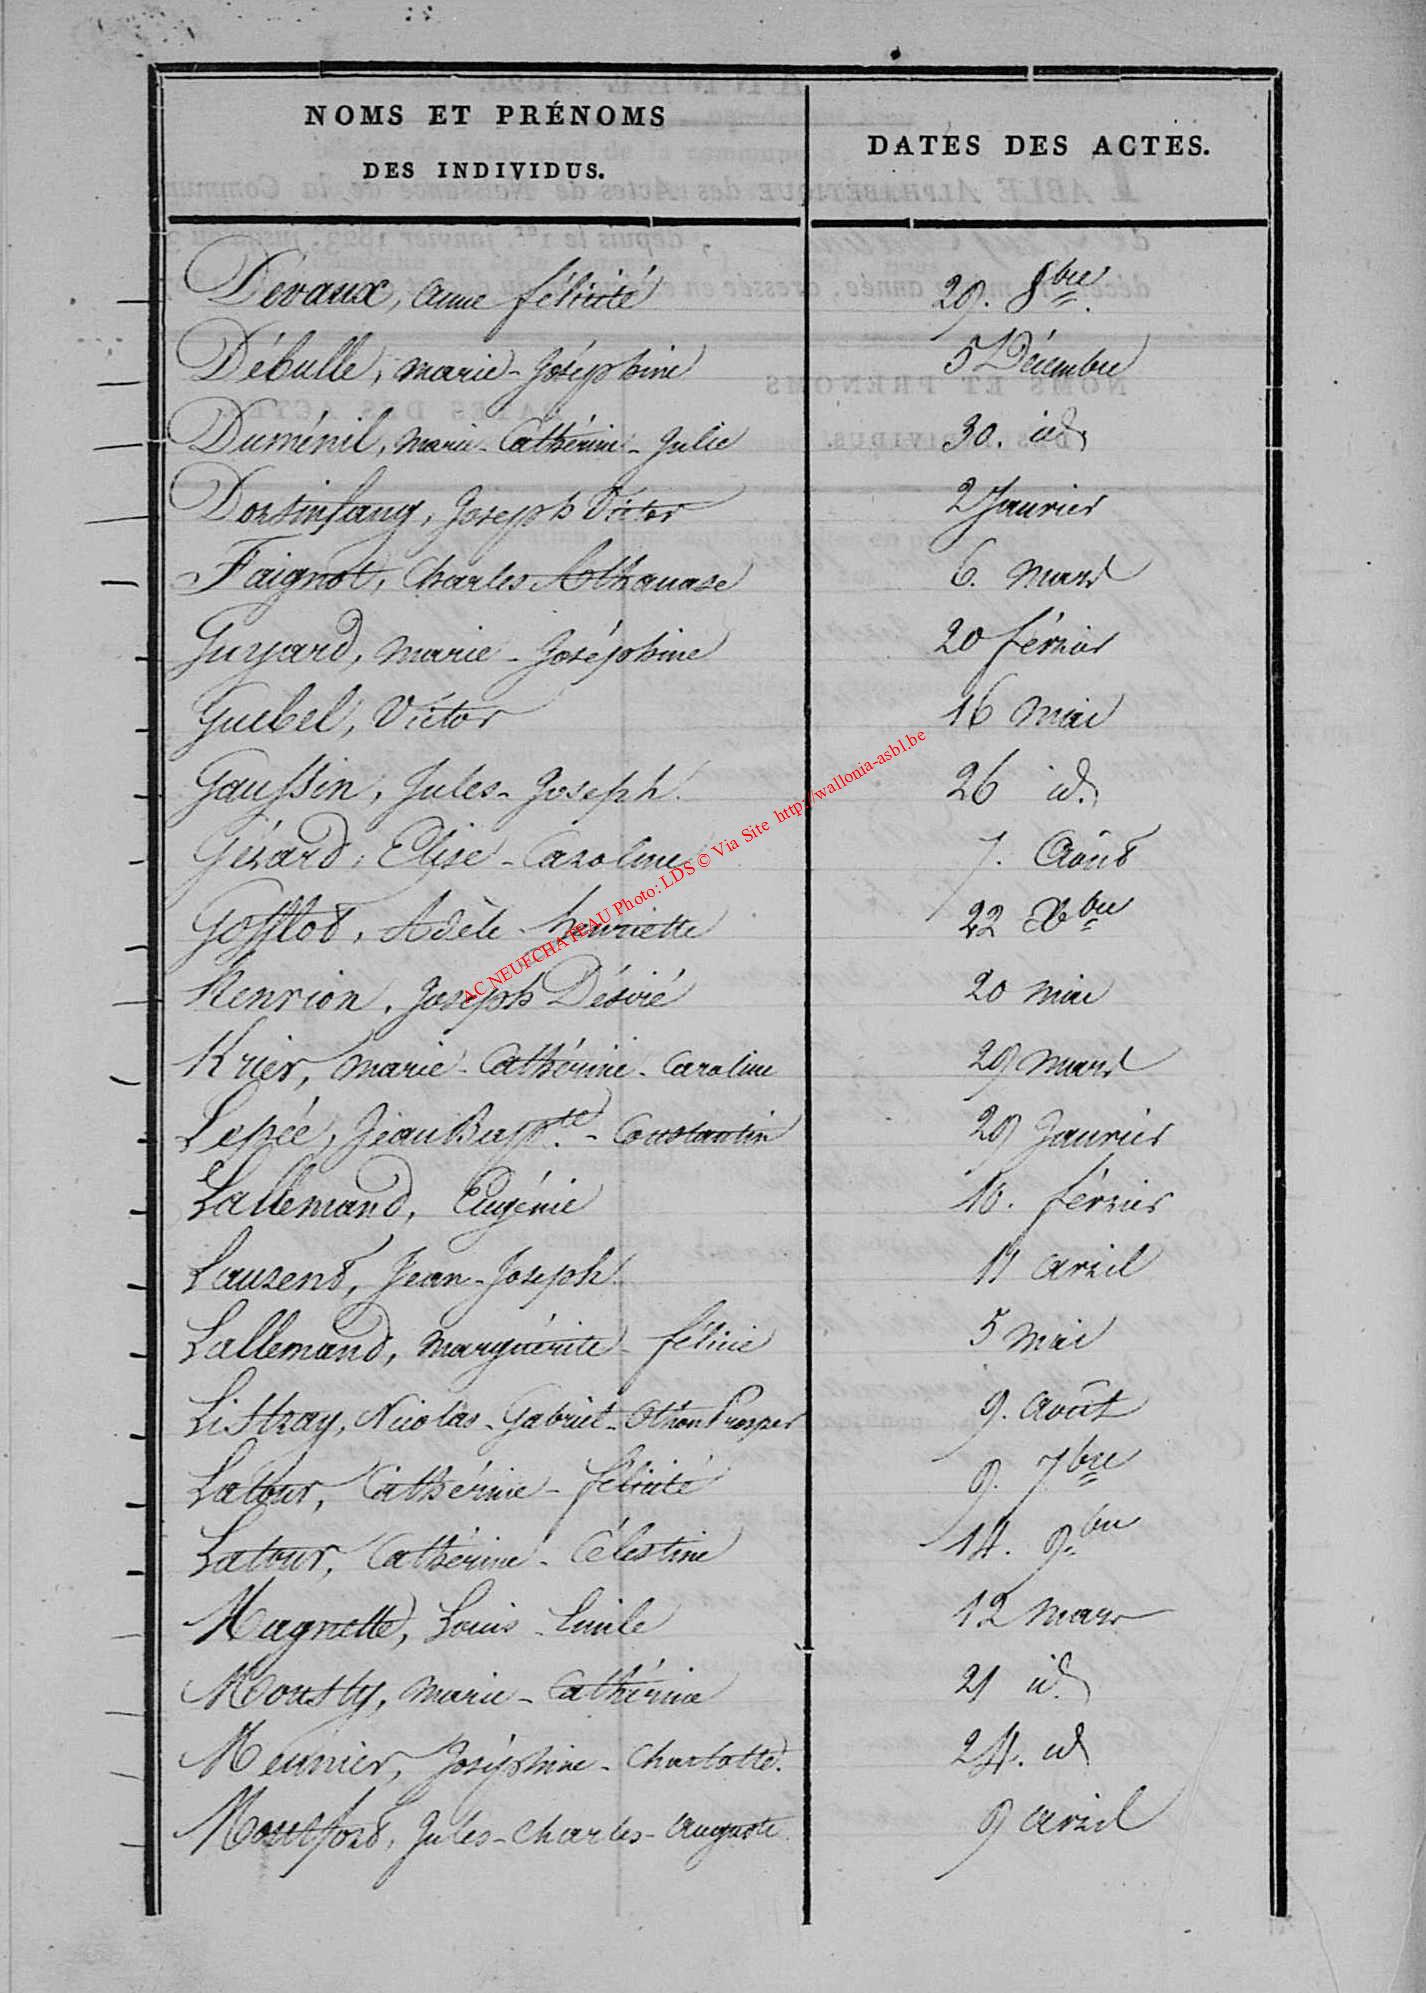 NOMS ET PRÉNOMS
DES INDIVIDUS.
DATES DES ACTES.
Dévaux, Anne félicité 29. 8bre.
Débulle, marie-Joséphine 5 Décembre
Duménil, Marie-Cathérine-Julie 30. id
Dorsinfang, Joseph Victor 2 Janvier
Faignot, Charles Athanase 6. mars
Guyard, marie-Joséphine 20 février
Guebel, Victor 16 mai
Gaussin, Jules-Joseph. 26 id.
Gérard, Elise-Caroline 7. Août
Gofflot, Adèle henriette 22 Xbre
Henrion, Joseph Désiré 20 mai
Krier, marie-Cathérine-Caroline 29 mars
Lepée, Jean Bapte-Constantin 29 Janvier
Lallemand, Eugénie 10. février
Laurent, Jean-Joseph 11 avril
Lallemand, marguérite-féline 5 mai
Listray, Nicolas-Gabriel-Othon Prosper 9. août
Latour, Cathérine-félicité 9. 7bre
Latour, Cathérine-Célestine 14. 9bre
Magnette, Louis-Emile 12 mars
Mousty, marie-Cathérine 21 id.
Meunier, Joséphine-Charlotte. 24. id
Montfort, Jules-Charles-Auguste 9 avril
AC NEUFCHATEAU Photo: LDS © Via Site http://wallonia-asbl.be